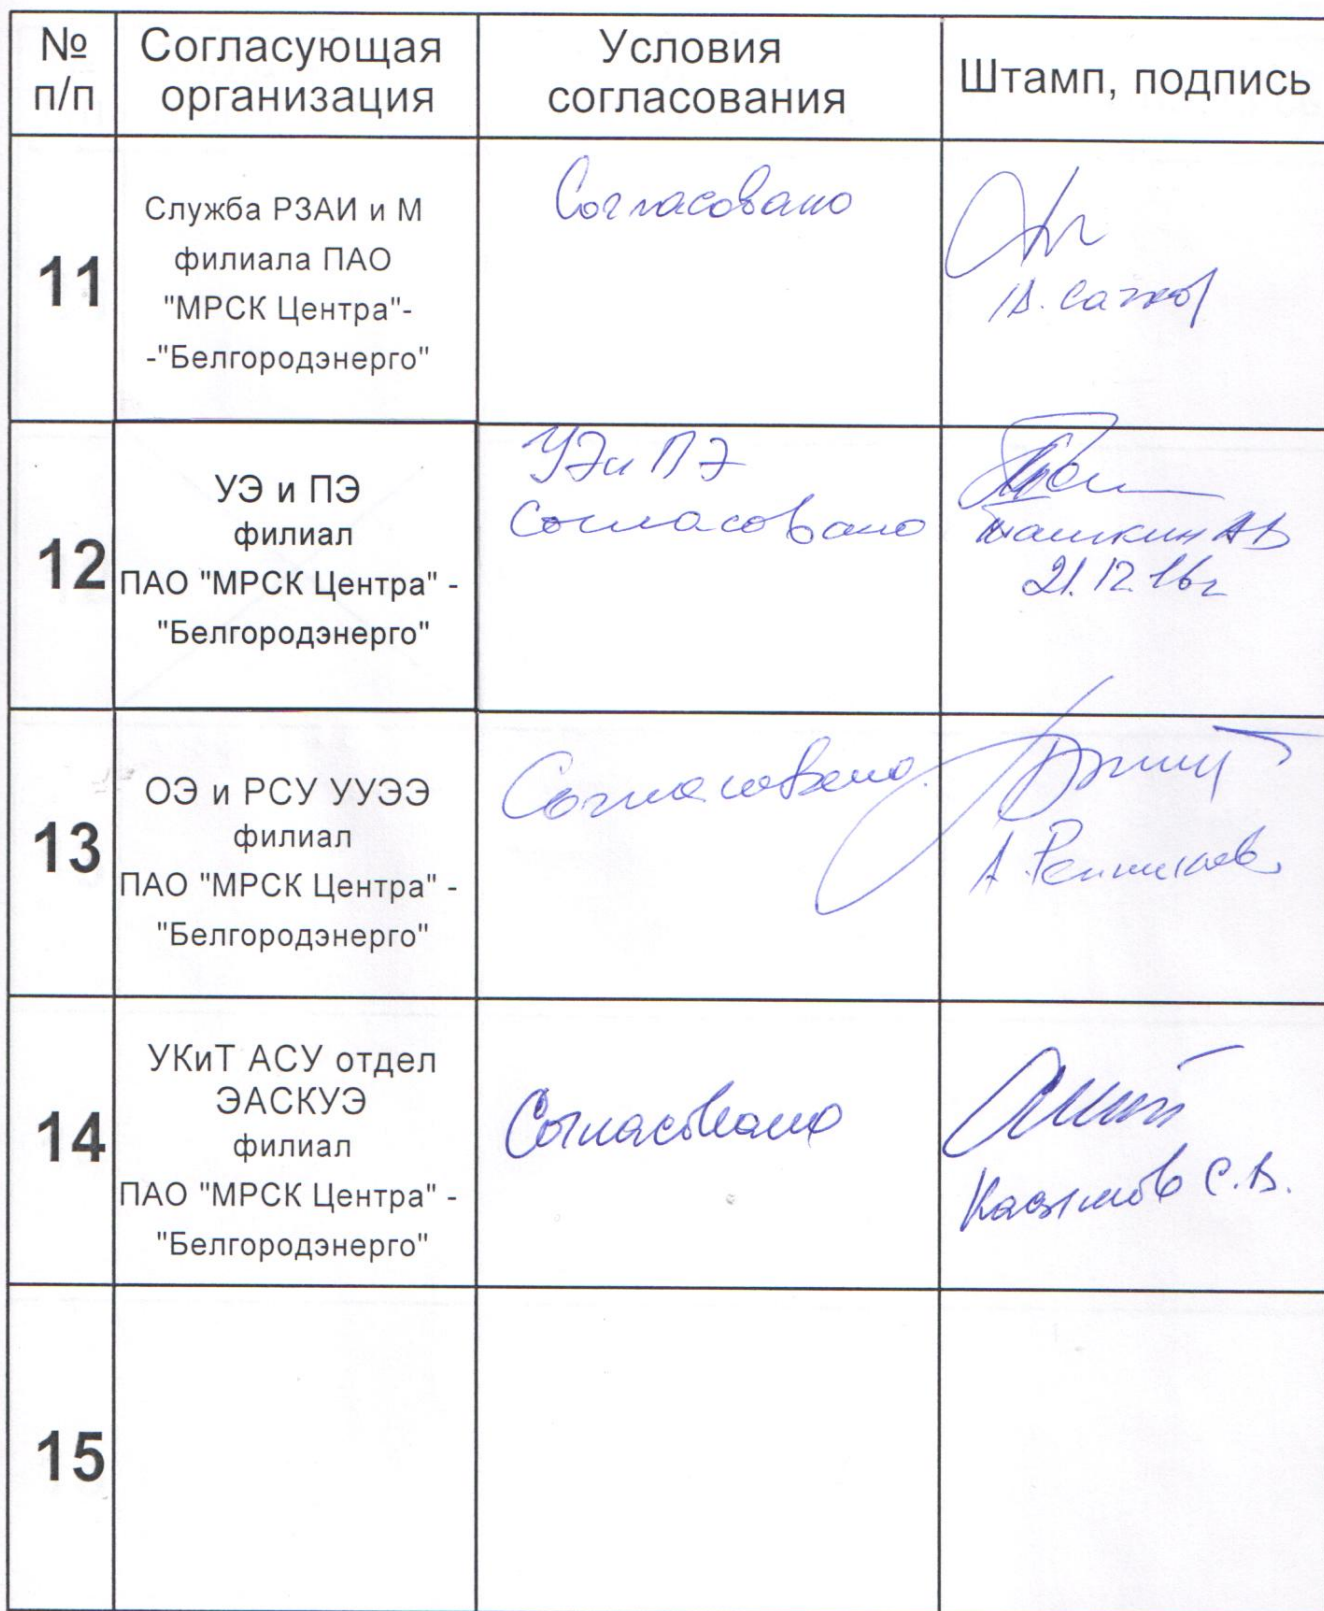 № п/п
Согласующая организация
Условия согласования
Штамп, подпись
11
Служба РЗАИ и М
филиала ПАО
"МРСК Центра"-
-"Белгородэнерго"
Согласовано
12
УЭ и ПЭ
филиал
ПАО "МРСК Центра" -
"Белгородэнерго"
УЭиПЭ
Согласовано
21.12.16г
13
ОЭ и РСУ УУЭЭ
филиал
ПАО "МРСК Центра" -
"Белгородэнерго"
Согласовано
14
УКиТ АСУ отдел
ЭАСКУЭ
филиал
ПАО "МРСК Центра" -
"Белгородэнерго"
Согласовано
Касымов С.В.
15